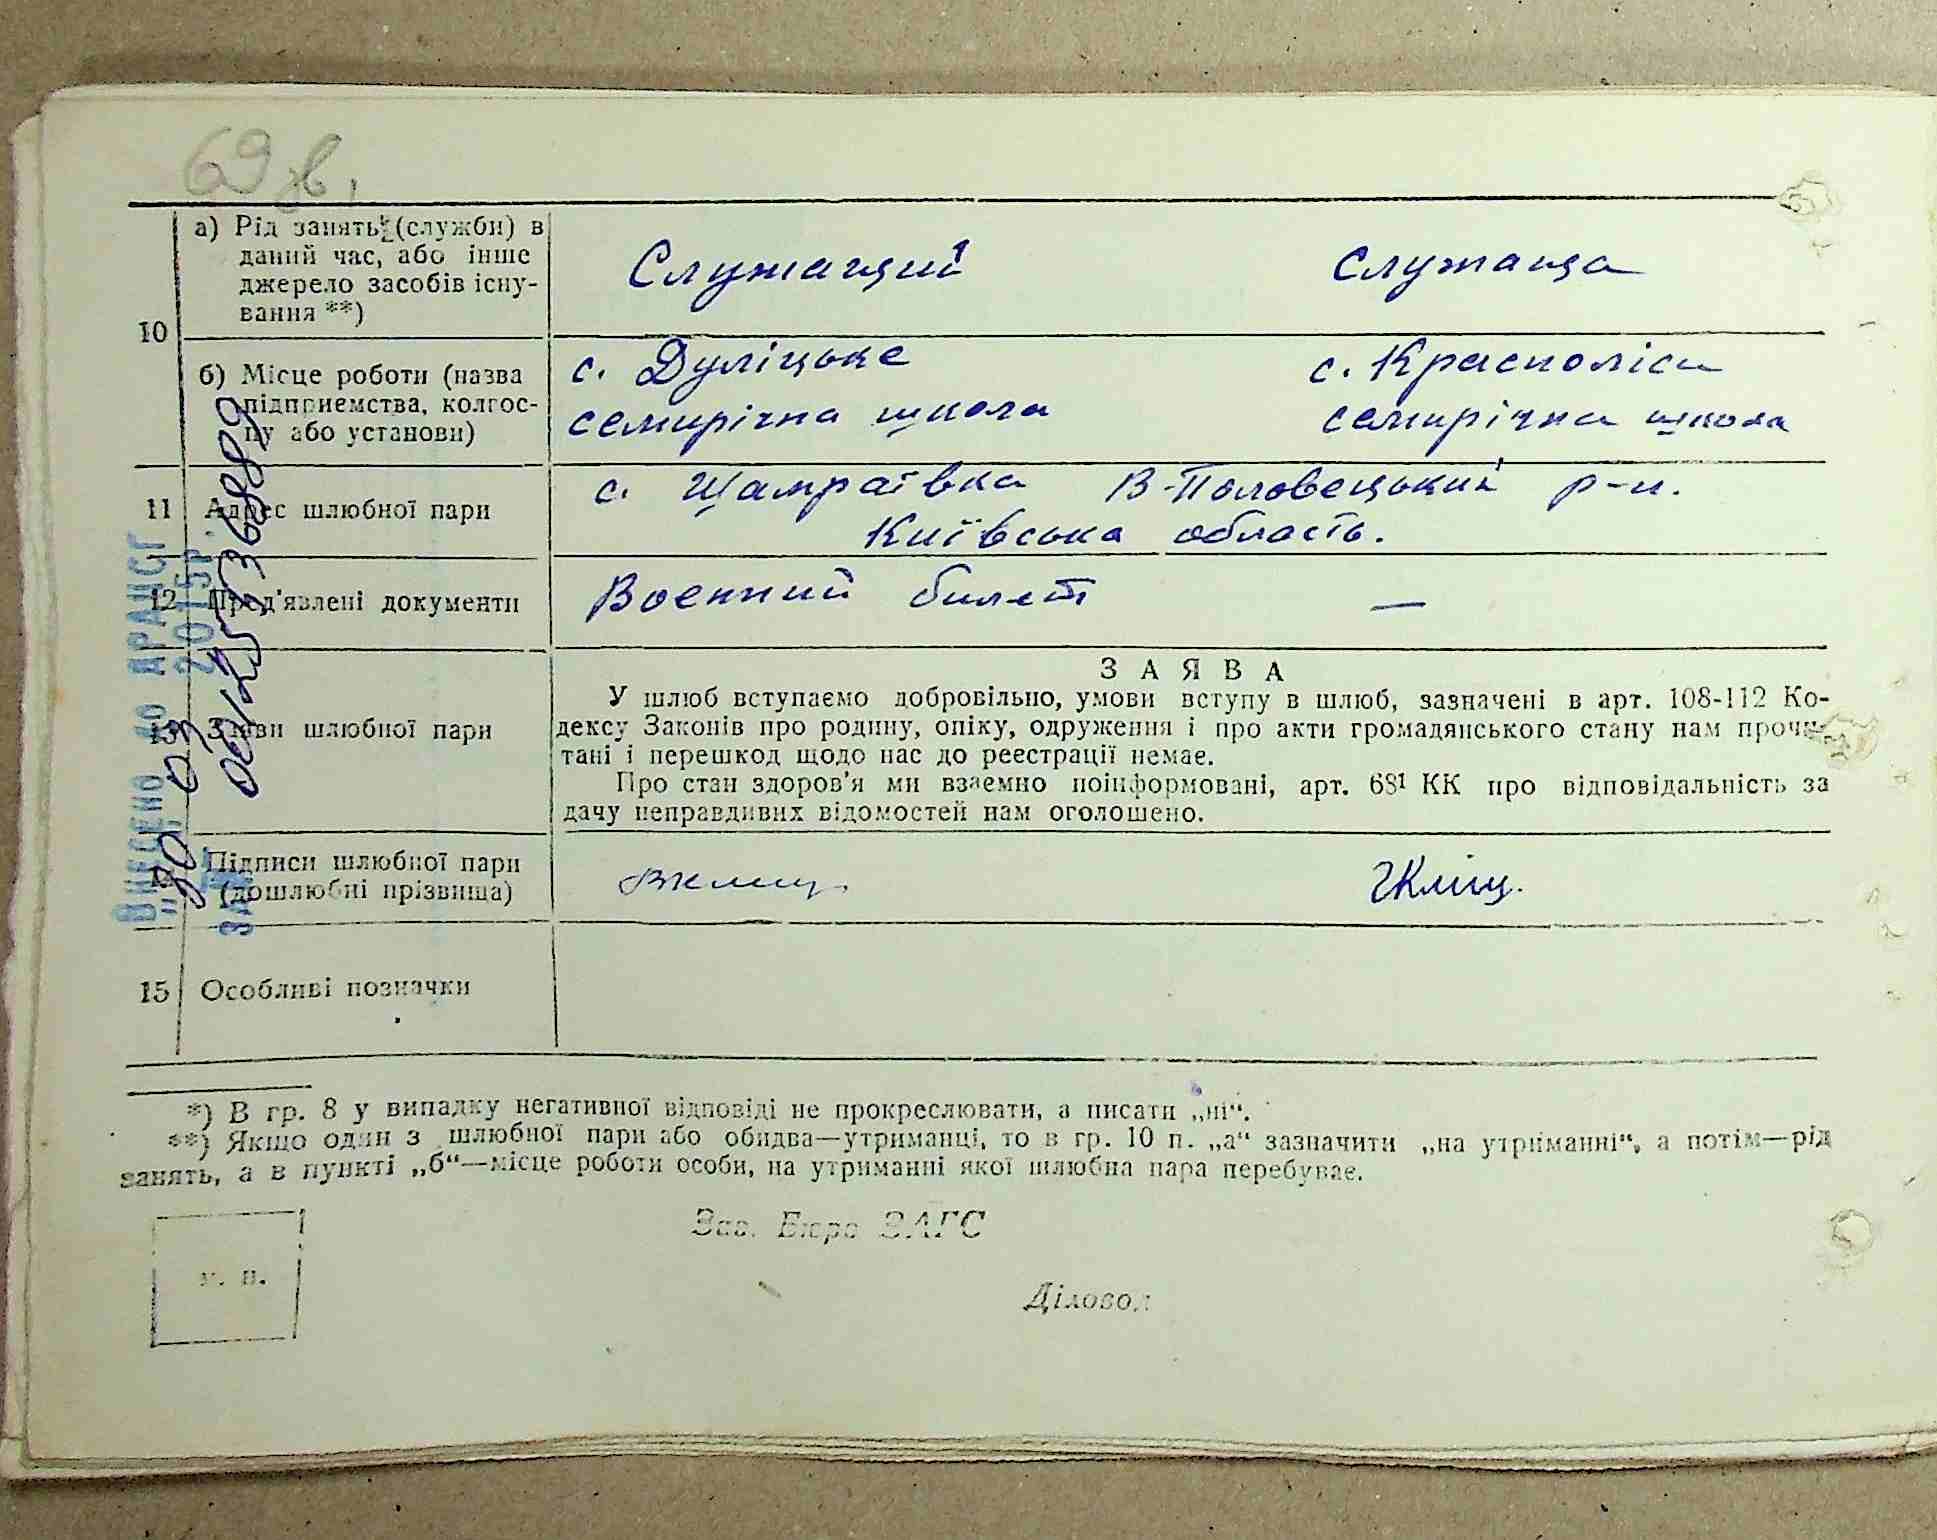 69 зв.
а) Рід занять (служби) в
даний час, або інше
джерело засобів існу-
вання **)
Служащий
служаща
10
б) Місце роботи (назва
підприємства, колгос-
пу або установи)
с. Дуліцьке
семирічна школа
с. Красноліси
семирічна школа
11 Адрес шлюбної пари
с. Шамраївка В-Половецький р-н.
Київська область.
12 Пред'явлені документи
Военний билет
—
13 Заяви шлюбної пари
ЗАЯВА
У шлюб вступаємо добровільно, умови вступу в шлюб, зазначені в арт. 108-112 Ко-
дексу Законів про родину, опіку, одруження і про акти громадянського стану нам прочи-
тані і перешкод щодо нас до реєстрації немає.
Про стан здоров'я ми взаємно поінформовані, арт. 68¹ КК про відповідальність за
дачу неправдивих відомостей нам оголошено.
14 Підписи шлюбної пари
(дошлюбні прізвища)
ГКліщ.
15 Особливі позначки
*) В гр. 8 у випадку негативної відповіді не прокреслювати, а писати „ні“.
**) Якщо один з шлюбної пари або обидва—утриманці, то в гр. 10 п. „а“ зазначити „на утриманні“, а потім—рід
занять, а в пункті „б“—місце роботи особи, на утриманні якої шлюбна пара перебуває.
Зав. Бюро ЗАГС
м. п.
Діловод
ВНЕСЕНО ДО ДРАЦСГ
"30" 03 2015р.
00125736889